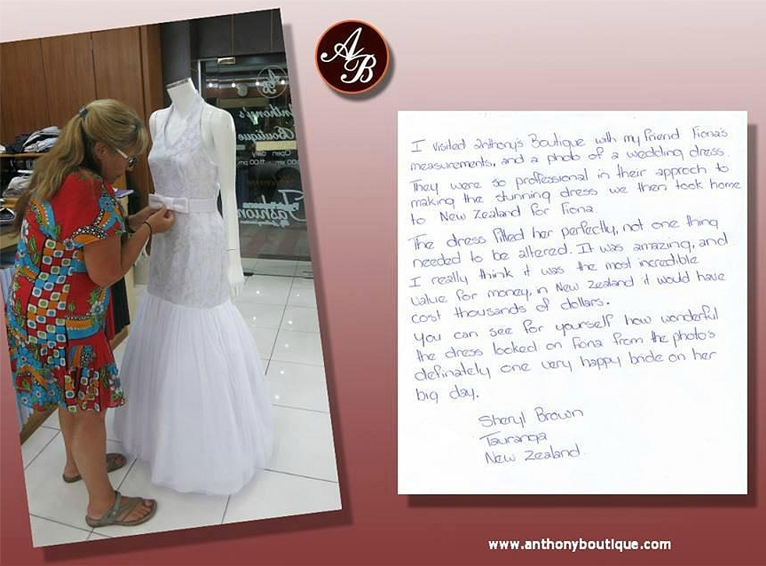 AB
Anthony's
Boutique
Open
Fashion
I visited Anthony's Boutique with my friend Fiona's
measurements, and a photo of a wedding dress.
They were so professional in their approch to
making the stunning dress we then took home
to New Zealand for Fiona.
The dress fitted her perfectly, not one thing
needed to be altered. It was amazing, and
I really think it was the most incredible
value for money, in New Zealand it would have
cost thousands of dollars.
You can see for yourself how wonderful
the dress looked on Fiona from the photo's
definately one very happy bride on her
big day.
Sheryl Brown
Tauranga
New Zealand.
www.anthonyboutique.com